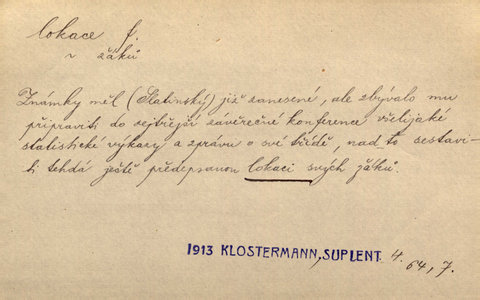 lokace f.
~ žáků
Známky měl (Slatinský) již zanesené, ale zbývalo mu
připraviti do zejtřejší závěrečné konference všelijaké
statistické výkazy a zprávu o své třídě, nad to sestavi-
ti tehdá ještě předepsanou lokaci svých žáků.
1913 KLOSTERMANN, SUPLENT 4.
64, 7.